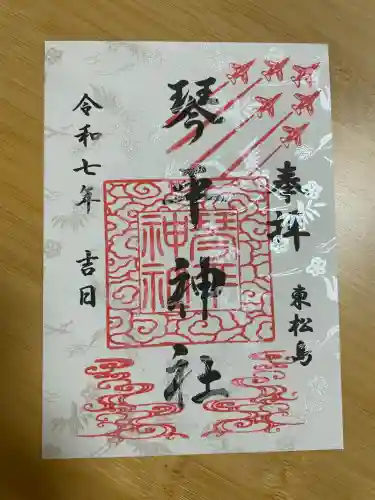 奉拝
東松島
琴平神社
琴平神社
令和七年 吉日